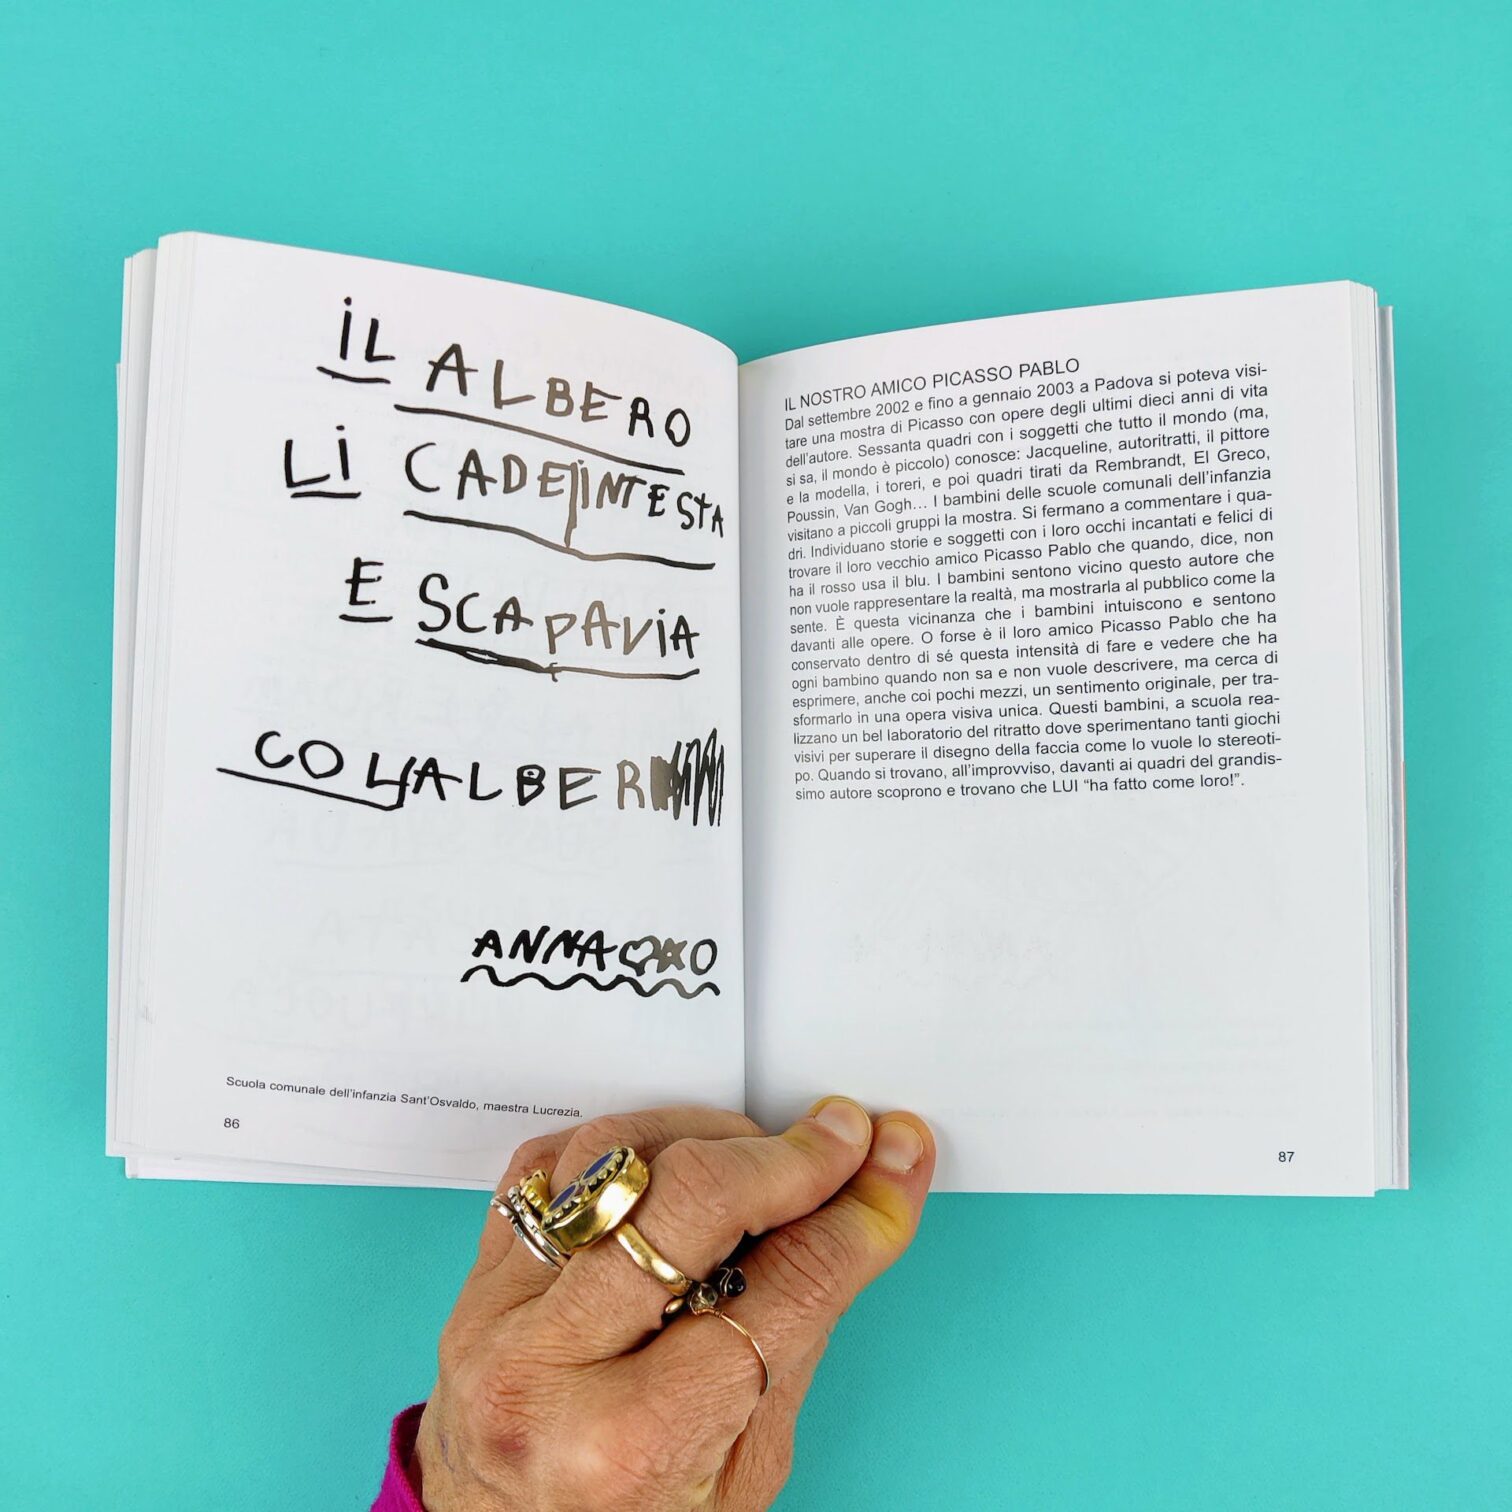 IL ALBERO
LI CADE INTESTA
E SCAPAVIA
COLALBER
ANNA O
Scuola comunale dell'infanzia Sant'Osvaldo, maestra Lucrezia.
86
IL NOSTRO AMICO PICASSO PABLO
Dal settembre 2002 e fino a gennaio 2003 a Padova si poteva visi-
tare una mostra di Picasso con opere degli ultimi dieci anni di vita
dell'autore. Sessanta quadri con i soggetti che tutto il mondo (ma,
si sa, il mondo è piccolo) conosce: Jacqueline, autoritratti, il pittore
e la modella, i toreri, e poi quadri tirati da Rembrandt, El Greco,
Poussin, Van Gogh… I bambini delle scuole comunali dell'infanzia
visitano a piccoli gruppi la mostra. Si fermano a commentare i qua-
dri. Individuano storie e soggetti con i loro occhi incantati e felici di
trovare il loro vecchio amico Picasso Pablo che quando, dice, non
ha il rosso usa il blu. I bambini sentono vicino questo autore che
non vuole rappresentare la realtà, ma mostrarla al pubblico come la
sente. È questa vicinanza che i bambini intuiscono e sentono
davanti alle opere. O forse è il loro amico Picasso Pablo che ha
conservato dentro di sé questa intensità di fare e vedere che ha
ogni bambino quando non sa e non vuole descrivere, ma cerca di
esprimere, anche coi pochi mezzi, un sentimento originale, per tra-
sformarlo in una opera visiva unica. Questi bambini, a scuola rea-
lizzano un bel laboratorio del ritratto dove sperimentano tanti giochi
visivi per superare il disegno della faccia come lo vuole lo stereoti-
po. Quando si trovano, all'improvviso, davanti ai quadri del grandis-
simo autore scoprono e trovano che LUI “ha fatto come loro!”.
87